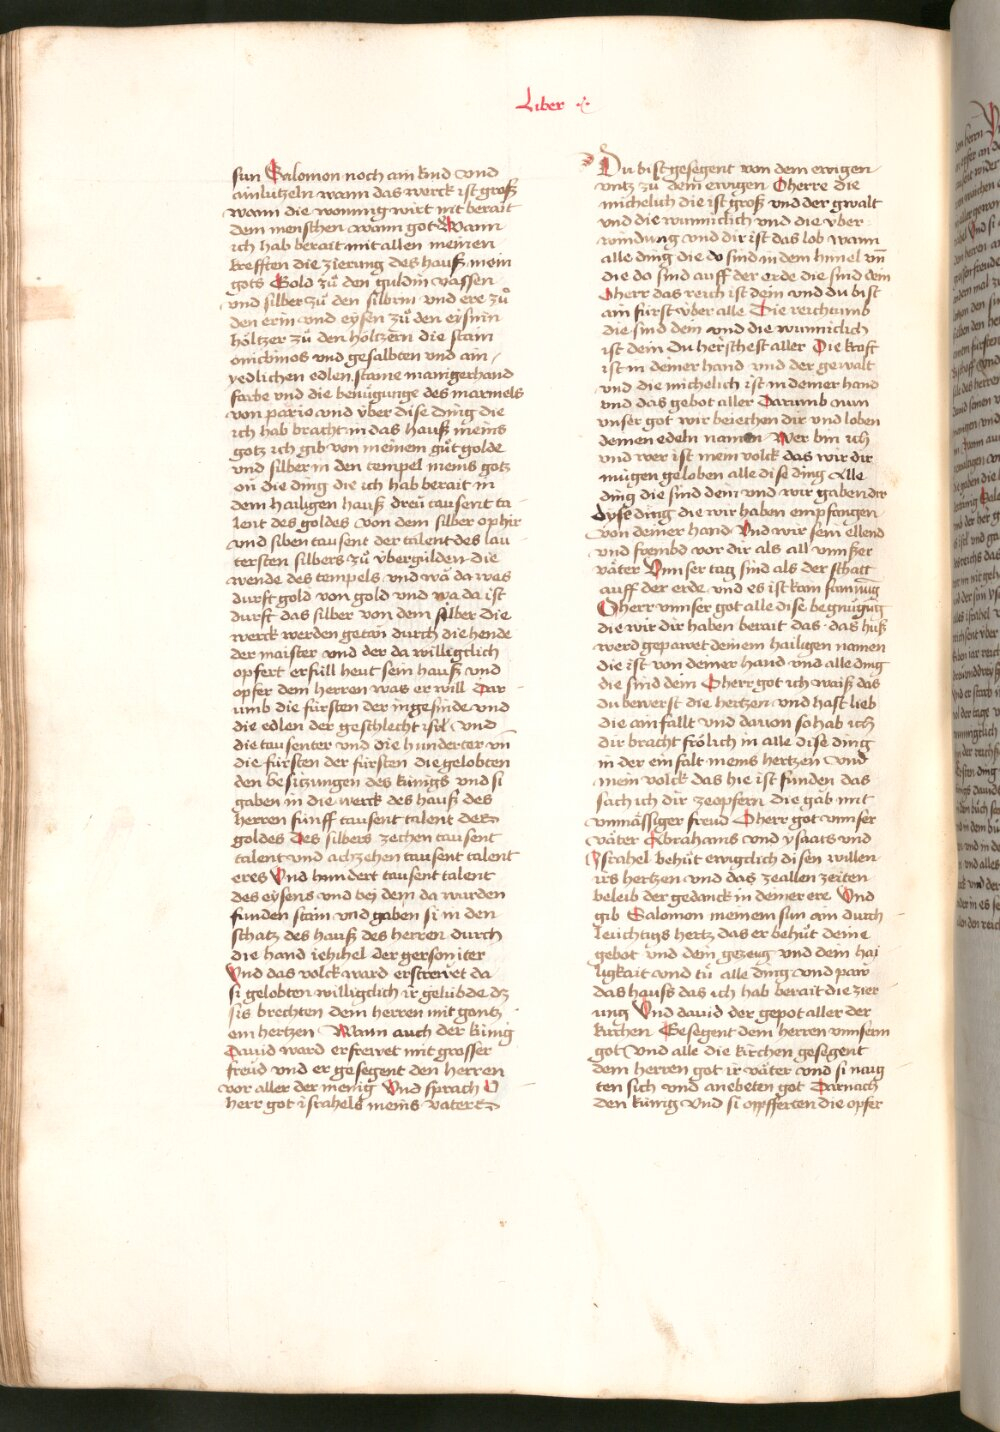 Liber
sun Salomon noch ain kind vnd
ainlutzeln wann das werck ist groß
wann die wonung wirt nit berait
dem menschen wann got Wann
ich hab berait mit allen meinen
krefften die zierung des hauß mein
gots Gold zů den guldin vassen
vnd silber zů den silbrin vnd ere zů
den erin vnd eysen zů den eysnin
höltzer zů den höltzern die stain
onichinos vnd gesalbten vnd ain
yedlichen edlen staine manigerhand
farbe vnd die benügunge des marmels
von pario vnd vber dise ding die
ich hab bracht in das hauß meins
gotz ich gib von meinem gůt golde
vnd silber in den tempel meins gotz
on die ding die ich hab berait in
dem hailigen hauß dreü tausent ta
lent des goldes von dem silber ophir
vnd siben tausent der talent des lau
tersten silbers zů vbergülden die
wende des tempels vnd wa da was
durft gold von gold vnd wa da ist
durft das silber von dem silber die
werck werden getan durch die hende
der maister vnd der da williglich
opfert erfüll heut sein hauß vnd
opfer dem herren was er will Dar
umb die fürsten der ingesinde vnd
die edlen der geschlecht isrl vnd
die tausenter vnd die hunderter vn̄
die fürsten der fürsten die gelobten
den besitzungen des künigs vnd si
gaben in die werck des hauß des
herren fünff tausent talent des
goldes Des silbers zechen tausent
talent vnd achzehen tausent talent
eres Vnd hundert tausent talent
des eysens vnd bei dem da wurden
funden stain vnd gaben si in den
schatz des hauß des herren durch
die hand iehihel der gersoniter
Vnd das volck ward erfrewet da
si gelobten williglich ir gelübde dz
sis brechten dem herren mit gantz
em hertzen Wann auch der künig
Dauid ward erfrewet mit grosser
freüd vnd er gesegent den herren
vor aller der menig Vnd sprach O
herr got israhels meins vaters
Du bist gesegent von dem ewigen
vntz zu dem ewigen O herre die
michelich die ist groß vnd der gwalt
vnd die wunniclich vnd die vber
windung vnd dir ist das lob wann
alle ding die do sind in dem himel vn̄
die do sind auff der erde die sind dein
O herr das reich ist dein vnd du bist
ain fürst vber alle Die reichtumb
die sind dein vnd die wunniclich
ist dein Du herschest aller Die kraft
ist in deiner hand vnd der gewalt
vnd die michelich ist in deiner hand
vnd das gebot aller Darumb nun
vnser got wir beiechen dir vnd loben
deinen edeln namen Wer bin ich
vnd wer ist mein volck das wir dir
mügen geloben alle dise ding Alle
ding die sind dein vnd wir gaben dir
dyse ding die wir haben empfangen
von deiner hand Vnd wir sein ellend
vnd frembd vor dir als all vnnser
väter Vnnser tag sind als der schatt
auff der erde vnd es ist kain samnūg
O herr vnnser got alle dise begnügūg
die wir dir haben berait das das huß
werd gepawet deinem hailigen namen
die ist von deiner hand vnd alle ding
die sind dein O herr got ich waiß das
du bewerst die hertzen vnd hast lieb
die ainfallt vnd dauon so hab ich
dir bracht frölich in alle dise ding
in der ainfalt meins hertzen vnd
mein volck das hie ist funden das
sach ich dir zeopfern die gab mit
vnmässiger freüd O herr got vnnser
väter Abrahams vnd ysaacs vnd
Israhel behüt ewigclich disen willen
irs hertzen vnd das zeallen zeiten
beleib der gedanck in deiner ere Vnd
gib Salomon meinem sun ain durch
leuchtigs hertz das er behüt deine
gebot vnd dein gezeug vnd dein hai
ligkait vnd tů alle ding vnd paw
das hauß das ich hab berait die zier
ung Vnd dauid der gepot aller der
kirchen Gesegent dem herren vnnserm
got Vnd alle die kirchen gesegent
dem herren got ir väter vnd si naig
ten sich vnd anebeten got Darnach
den künig vnd si opfferten die opfer